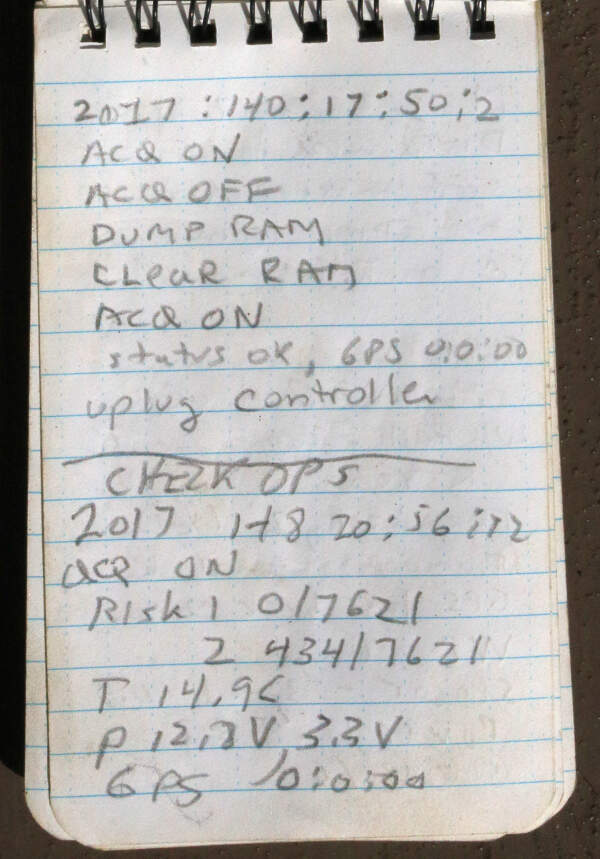 2017:140:17:50:2
ACQ ON
ACQ OFF
DUMP RAM
CLeaR RAM
ACQ ON
status ok, GPS 0:0:00
uplug controller
CHECK OPS
2017 20:56:12
acq ON
RIsk 1 0/7621
2 434/7621
T 14.9C
P 12.8V, 3.3V
GPS 0:0:00